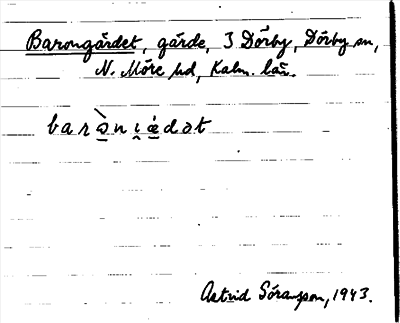 Barongärdet, gärde, 3 Dörby, Dörby sn,
N. Möre hd, Kalm. län.
barò̱nι̯ǽ̱dət
Astrid Göransson, 1943.